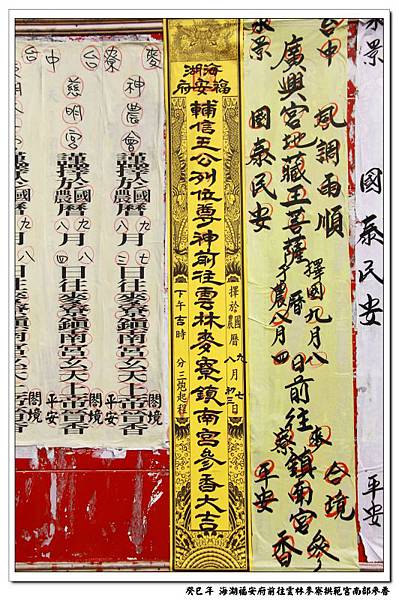 永景
國泰民安
平安
台中
永景
風調雨順
廣興宮地藏王菩薩
擇國九月八
于農曆八月四
日前往
麥
寮鎮南宮參香
國泰民安
合境
平安
海湖
福安府
輔信王公列位尊神前往雲林麥寮鎮南宮參香大吉
擇於國曆九月七日
農八初三
下午吉時 分三炮起程
麥寮
神農會
謹擇於國農曆九八月七三日往麥寮鎮南宮玄天上帝晉香
閤境平安
台中
慈明宮
謹擇於國農曆九八月八四日往麥寮鎮南宮玄天上帝晉香
閤境平安
癸巳年 海湖福安府前往雲林麥寮拱範宮南部參香